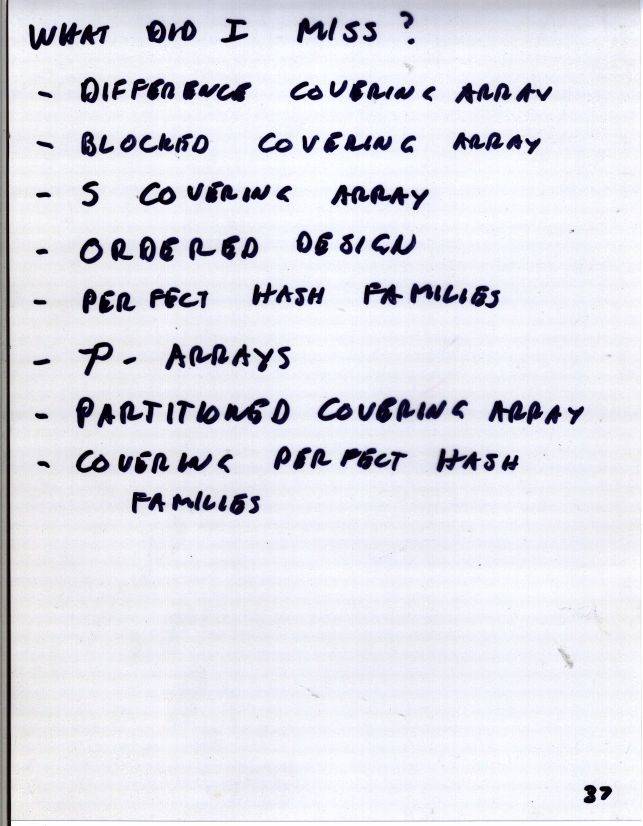 WHAT DID I MISS?
- DIFFERENCE COVERING ARRAY
- BLOCKED COVERING ARRAY
- S COVERING ARRAY
- ORDERED DESIGN
- PERFECT HASH FAMILIES
- P- ARRAYS
- PARTITIONED COVERING ARRAY
- COVERING PERFECT HASH
FAMILIES
37